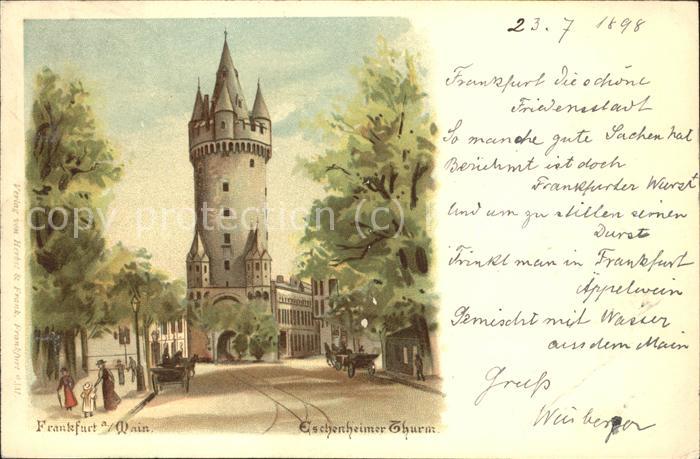 23. 7 1898
Frankfurt die schöne
Friedensstadt
So manche gute Sachen hat
Berühmt ist doch
Frankfurter Wurst
Und um zu stillen seinen
Durst
Trinkt man in Frankfurt
Äppelwein
Gemischt mit Wasser
aus dem Main
Gruß
Verlag von Herbst & Frank, Frankfurt a/M.
copy protection (c)
Frankfurt a/Main.
Eschenheimer Thurm.